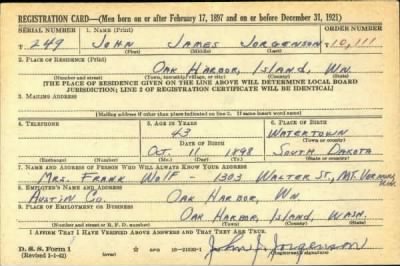 REGISTRATION CARD—(Men born on or after February 17, 1897 and on or before December 31, 1921)
SERIAL NUMBER 1. NAME (Print) ORDER NUMBER
T 249 JOHN JAMES JORGENSON T10,111
(First) (Middle) (Last)
2. PLACE OF RESIDENCE (Print)
OAK HARBOR, ISLAND, WN.
(Number and street) (Town, township, village, or city) (County) (State)
[THE PLACE OF RESIDENCE GIVEN ON THE LINE ABOVE WILL DETERMINE LOCAL BOARD
JURISDICTION; LINE 2 OF REGISTRATION CERTIFICATE WILL BE IDENTICAL]
3. MAILING ADDRESS
[Mailing address if other than place indicated on line 2. If same insert word same]
4. TELEPHONE 5. AGE IN YEARS 6. PLACE OF BIRTH
43 WATERTOWN
DATE OF BIRTH (Town or county)
OCT. 11 1898 SOUTH DAKOTA
(Mo.) (Day) (Yr.) (State or country)
7. NAME AND ADDRESS OF PERSON WHO WILL ALWAYS KNOW YOUR ADDRESS
MRS. FRANK WOLF - 1303 WALTER ST., MT. VERNON,
8. EMPLOYER'S NAME AND ADDRESS
AUSTIN CO. OAK HARBOR, WN
9. PLACE OF EMPLOYMENT OR BUSINESS
OAK HARBOR, ISLAND, WASH.
(Number and street or R. F. D. number) (Town) (County) (State)
I AFFIRM THAT I HAVE VERIFIED ABOVE ANSWERS AND THAT THEY ARE TRUE.
D. S. S. Form 1
(Revised 1-1-42) (over) John J. Jorgenson